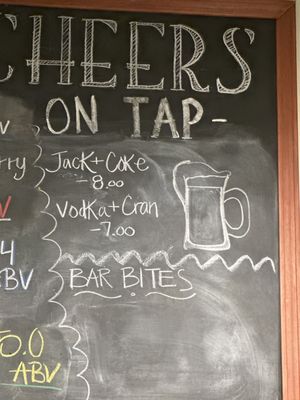 CHEERS
ON TAP -
Jack + Coke
- 8.00
Vodka + Cran
- 7.00
BAR BITES
4
ABV
5.0
ABV